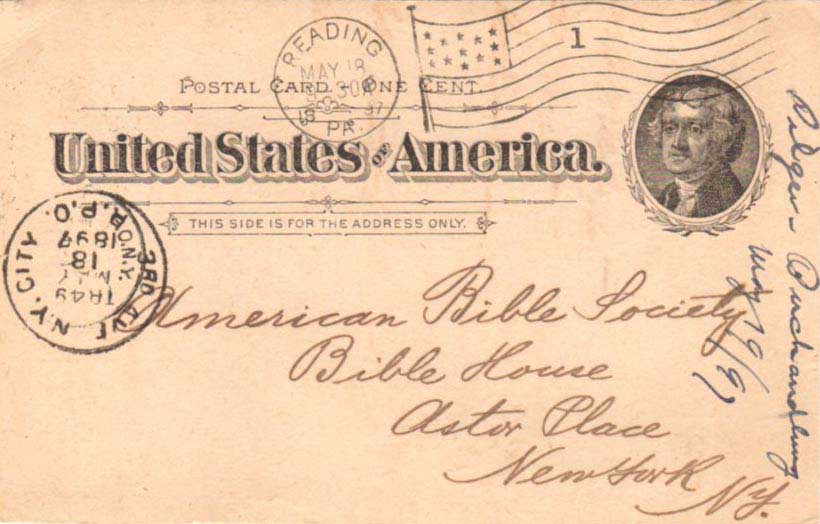 READING
MAY 18
30
97
PA.
1
POSTAL CARD - ONE CENT.
United States of America.
THIS SIDE IS FOR THE ADDRESS ONLY.
3RD AVE N.Y. CITY
N.Y. R.P.O.
1897
18
MAY
TR49
American Bible Society
Bible House
Astor Place
New York
N.Y.
Pilger Buchhandlung
May 19/97